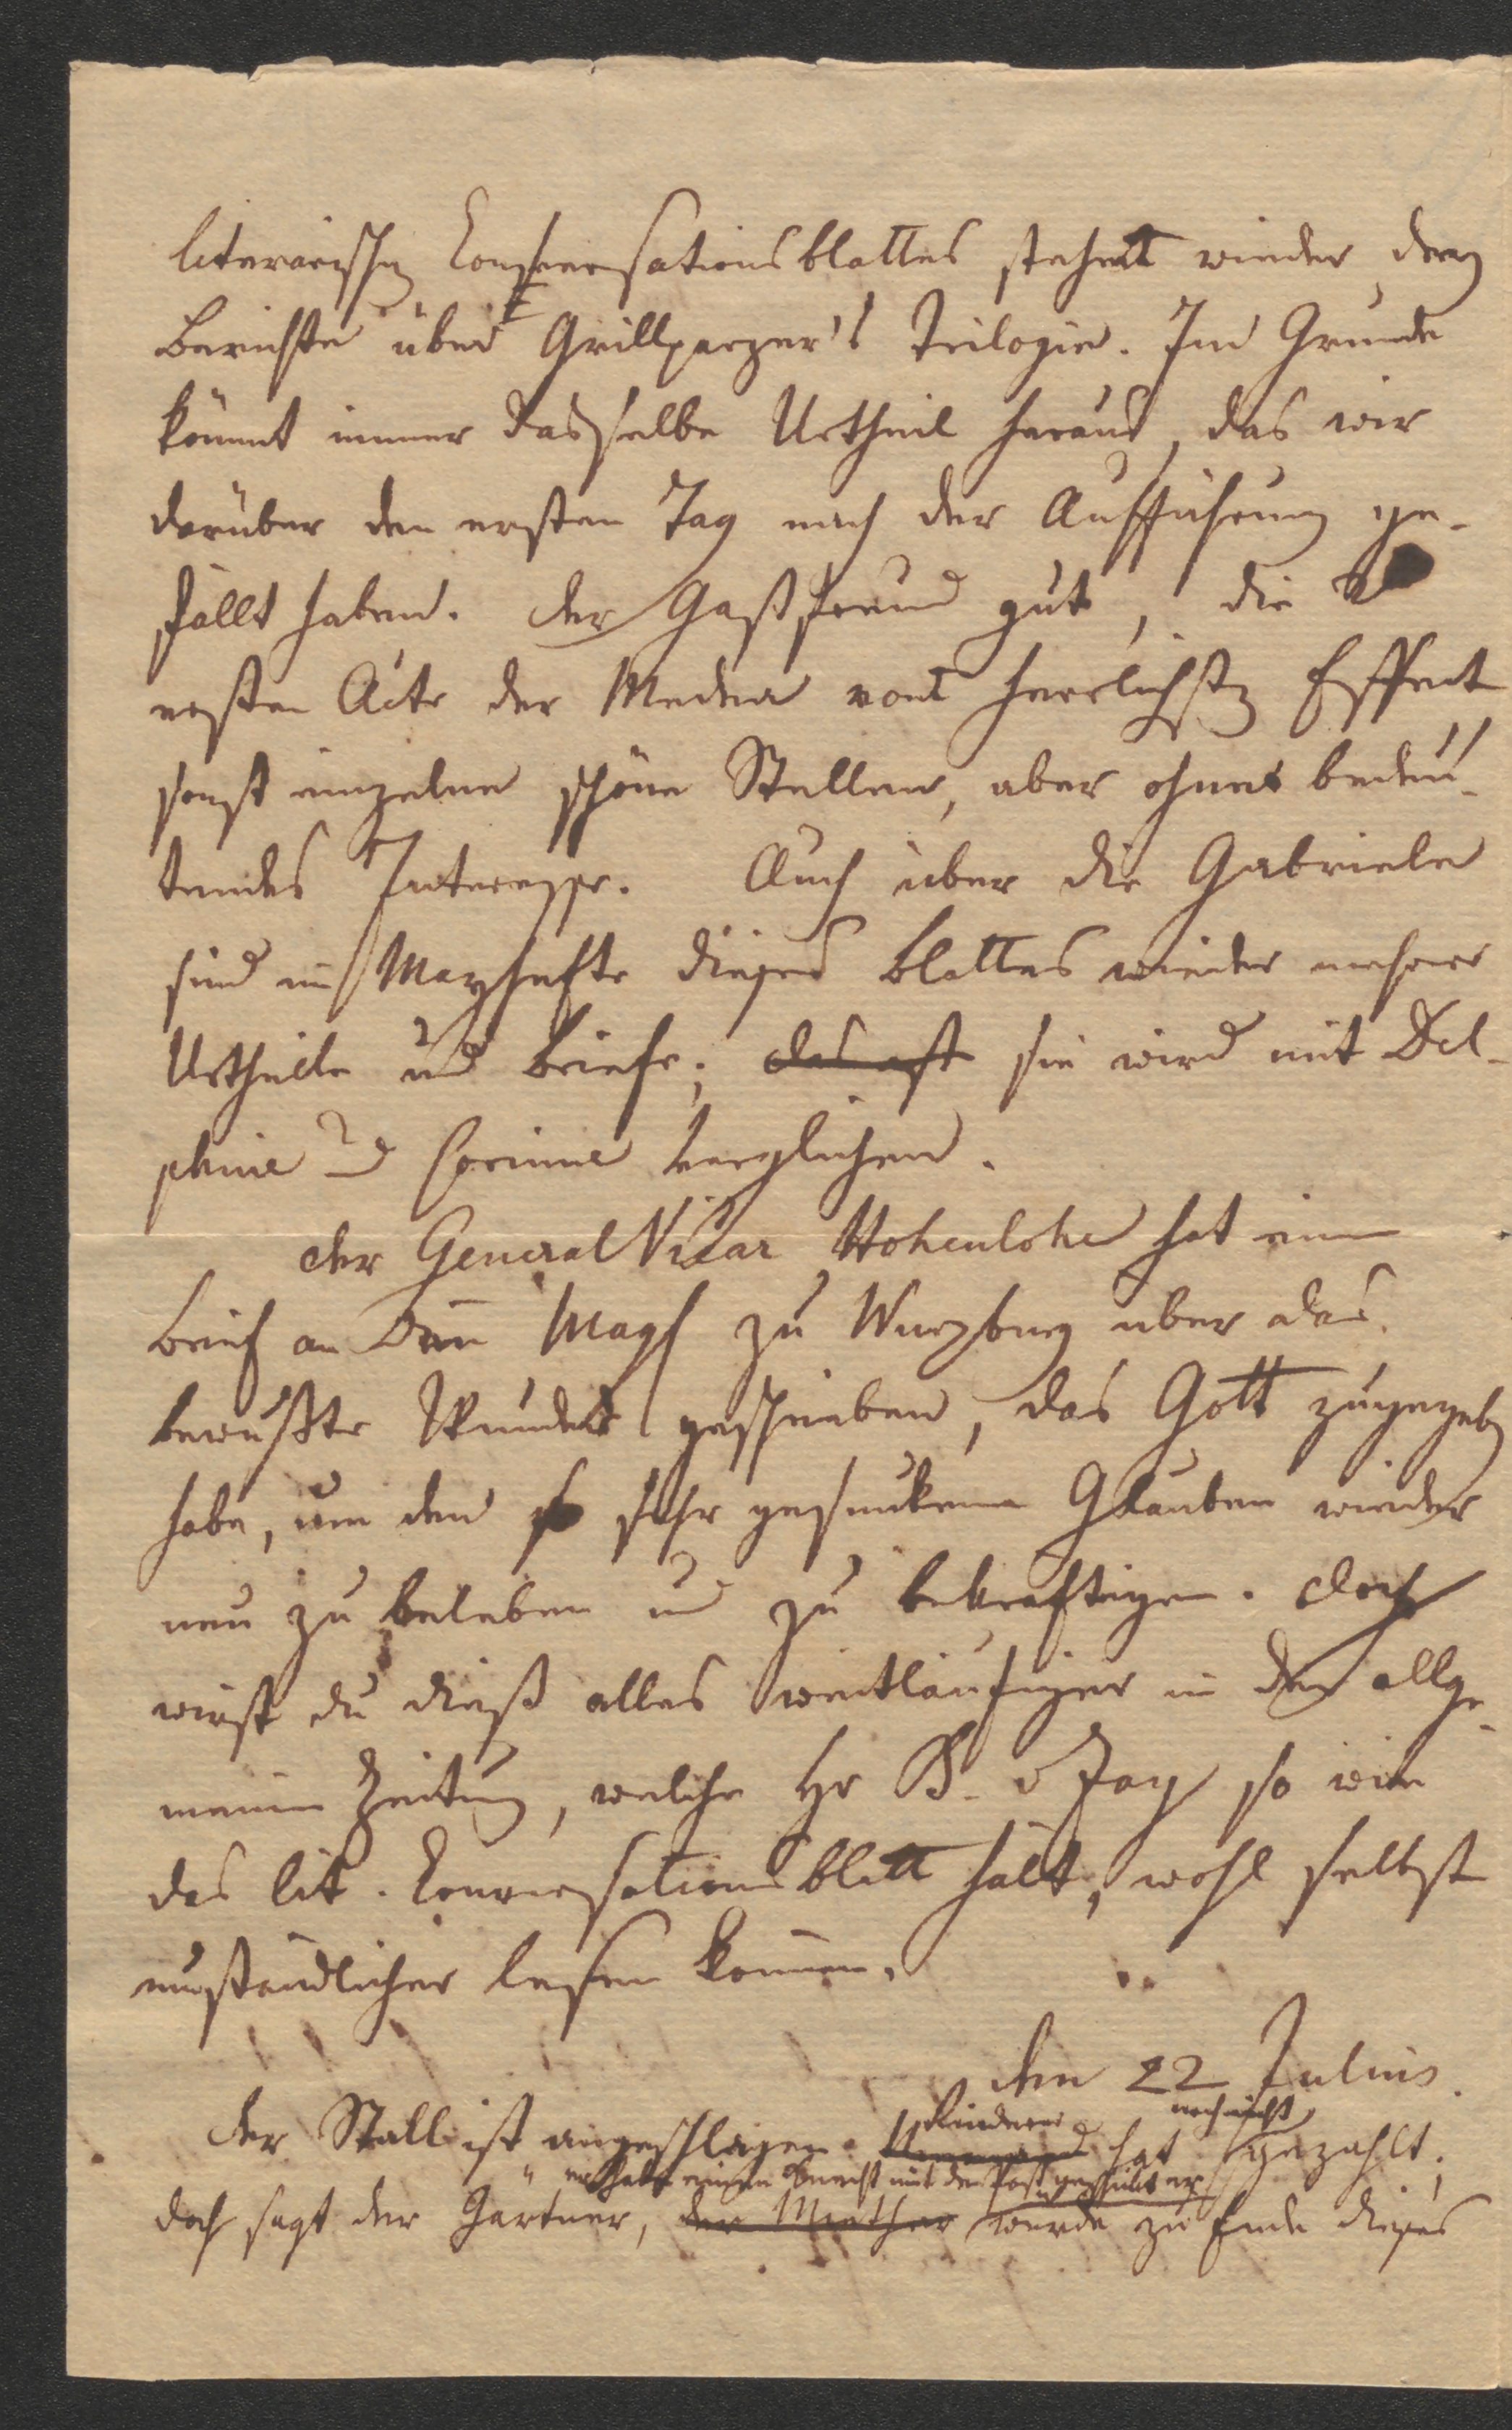 literarischen Conversationsblattes steht wieder der
Bericht über Grillparzer's Trilogie. Im Grunde
kömmt immer dasselbe Urtheil heraus, das wir
darüber den ersten Tag nach der Aufführung ge-
fällt haben. Der Gastfreund gut, die
ersten Acte der Medea von herrlichstem Effect
sonst einzelne schöne Stellen, aber ohne bedeu-
tendes Interesse. Auch über die Gabriele
sind im Mayhefte dieses Blattes wieder mehrere
Urtheile und Briefe; sie wird mit Del-
phine und Corinne verglichen.
Der General Vicar Hohenlohe hat einen
Brief an zu Würzburg über das
bewußte Wunder geschrieben, das Gott zugegeben
habe, um den sehr gesunkenen Glauben wieder
neu zu beleben und zu bekräftigen. Doch
wirst du dieß alles weitläufiger in der allge-
meinen Zeitung, welche Hr B. v Zay so wie
das lit. Conversationsblatt hält, wohl selbst
umständlicher lesen können.
den 22 Julius.
noch nicht
Der Stall ist angeschlagen. hat gezahlt;
er habe einen Knecht mit der Post geschickt er
doch sagt der Gärtner, der Miether werde zu Ende dieses